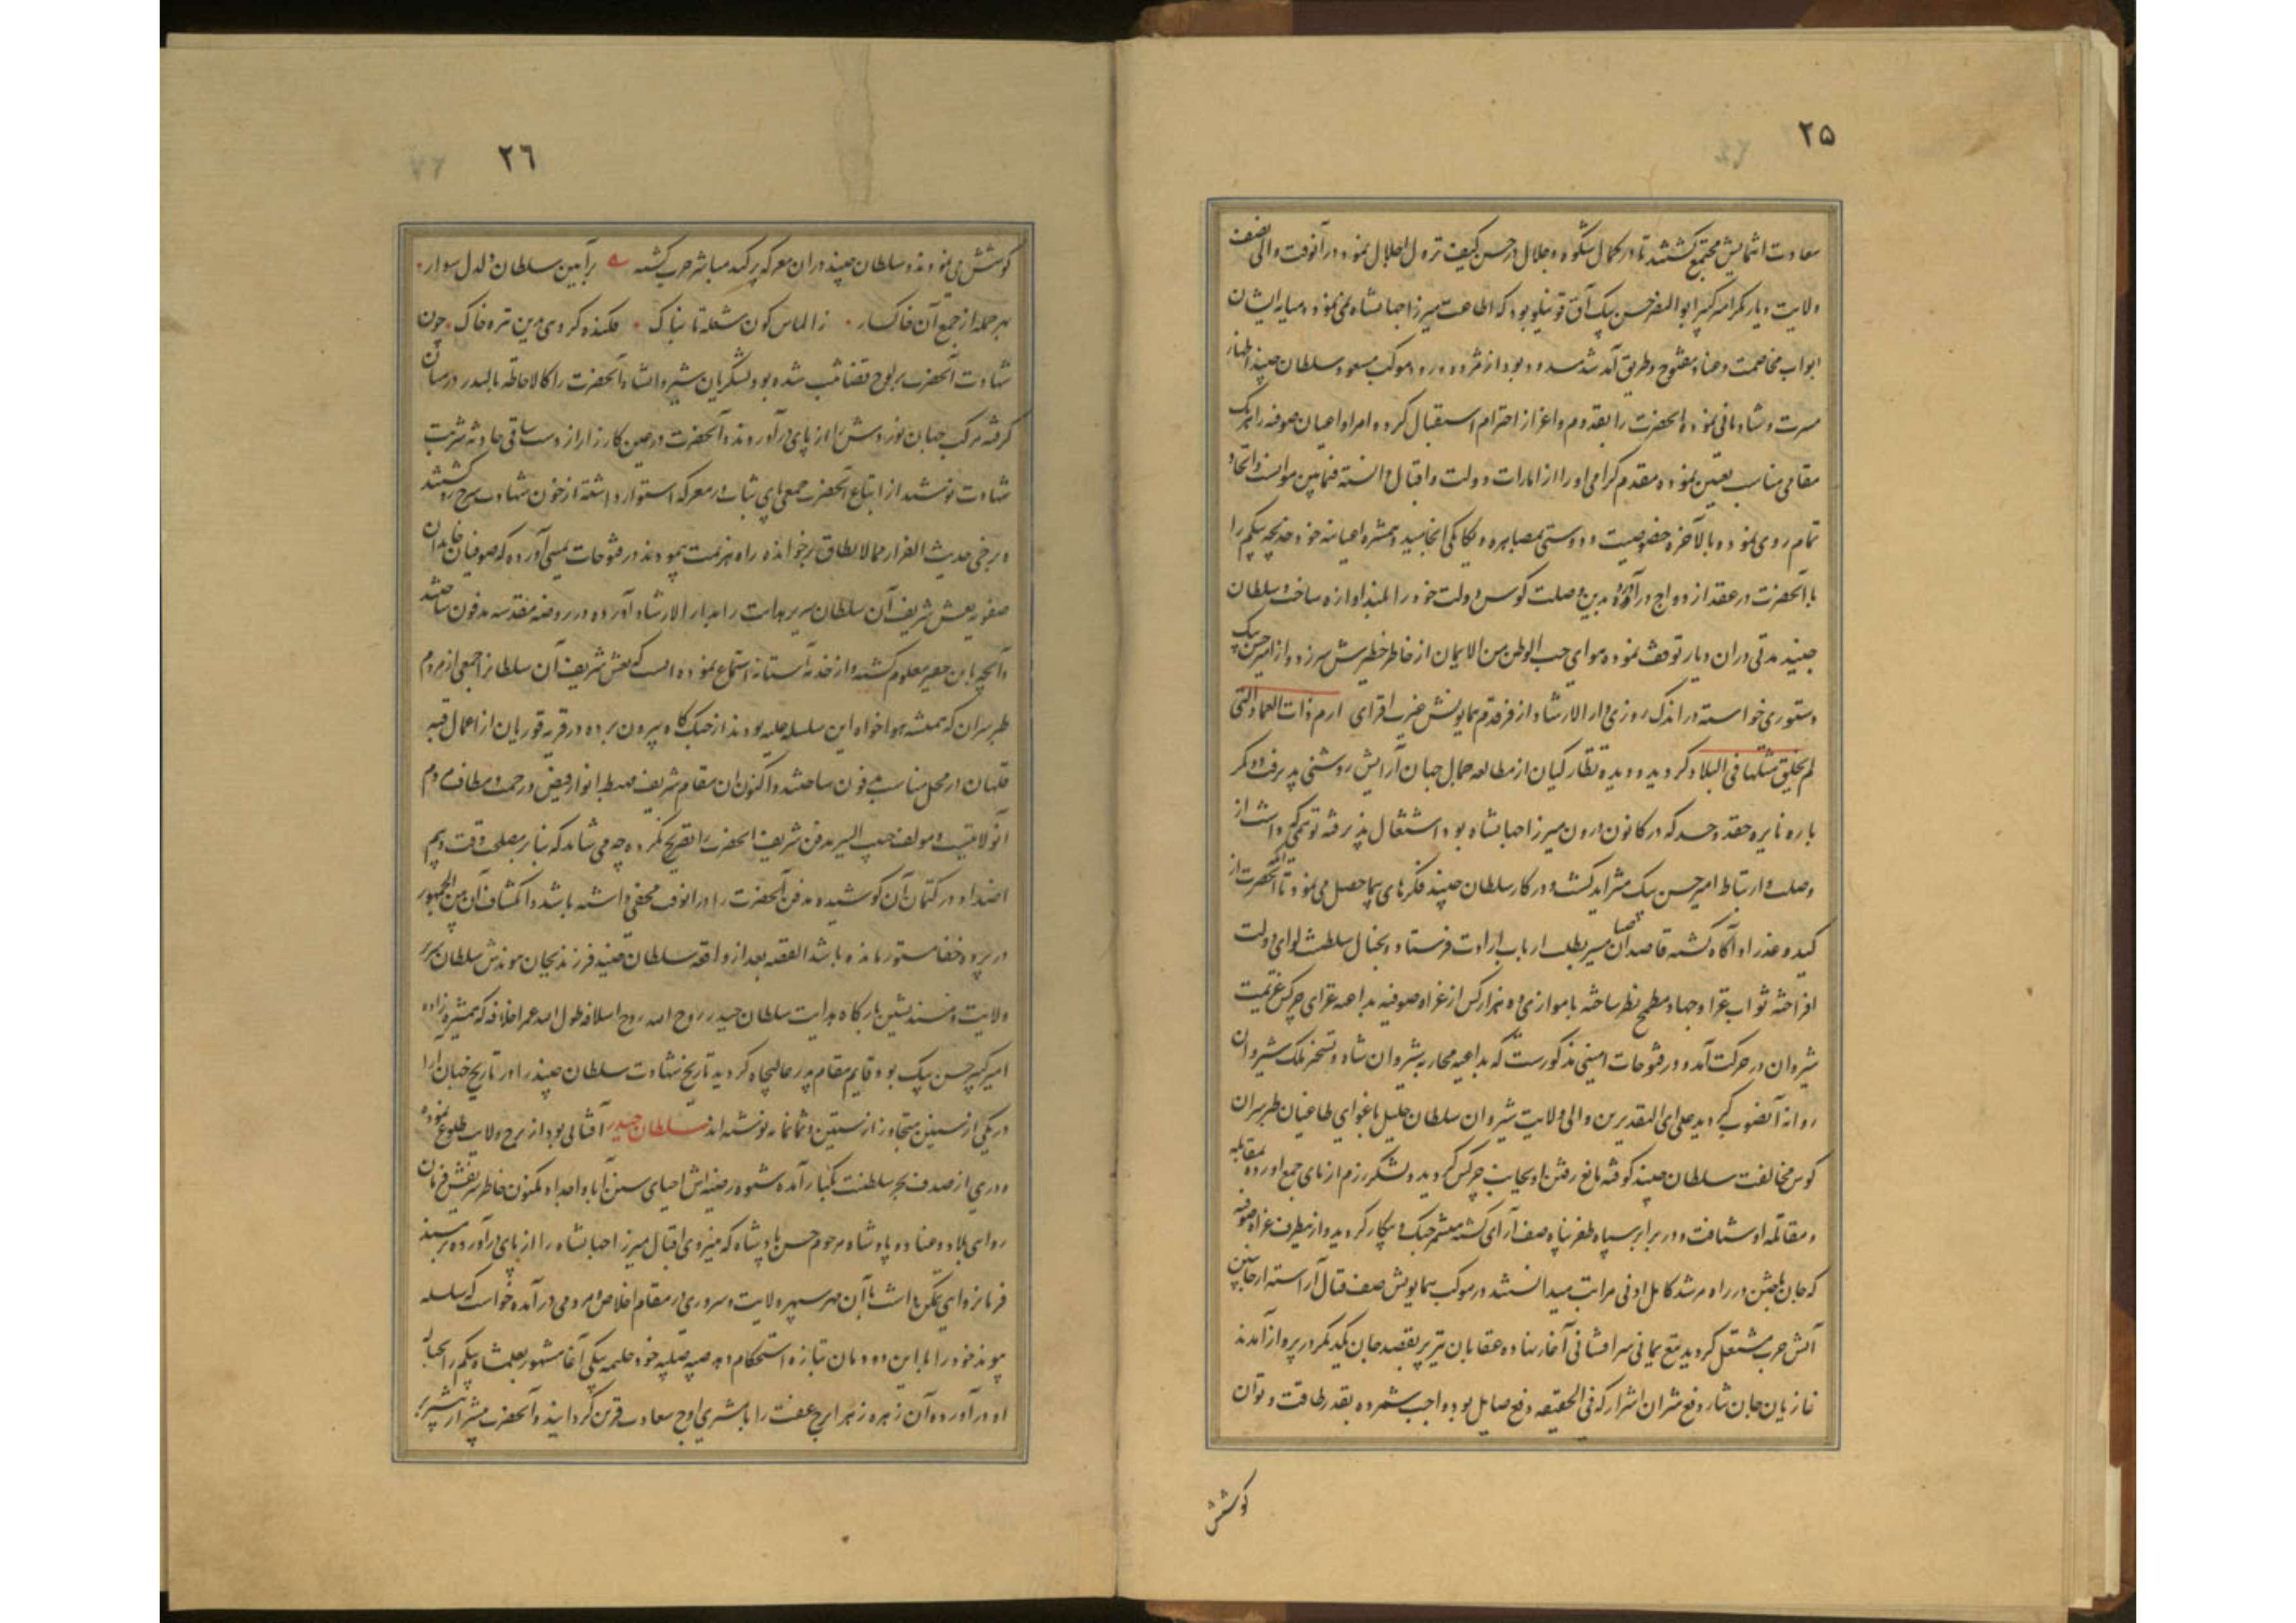 ۲۵
سعادت انتمایش مجتمع کشتند تا در کمال شکوه و جلال در حسن کیف نزول اجلال نمود و در آنوقت والی نصف
ولایت دیاربکر امیر کبیر ابو النصر حسن بیک آق قوینلو بود که اطاعت میرزا جهانشاه نمی نمود و میانه ایشان
ابواب مخاصمت و عناد مفتوح و طریق آمد شد مسدود بود از مژده ورود موکب مسعود سلطان جنید اظهار
مسرت و شادمانی نموده آنحضرت را بقدوم و اعزاز احترام استقبال کرده امرا و اعیان صوفیه را هریک
مقامی مناسب تعیین نموده مقدم کرامی او را از امارات دولت و اقبال دانسته فیمابین موانست و اتحاد
تمام روی نموده بالآخره خصوصیت و دوستی بمصاهره و یکانکی انجامید و همشیره اعیانیه خود خدیجه بیکم را
با آنحضرت در عقد ازدواج درآورده بدین وصلت کوس دولت خود را بلند اوازه ساخت و سلطان
جنید مدتی دران دیار توقف نموده هوای حب الوطن من الایمان از خاطر خطیرش سر زد و از امیر حسن بیک
دستوری خواسته در اندک روزی دار الارشاد از فر قدم همایونش غیرت افزای ارم ذات العماد التی
لم یخلق مثلها فی البلاد کردید و دیده نظارکیان از مطالعه جمال جهان آرایش روشنی پذیرفت و دکر
باره نایره حقد و حسد که در کانون درون میرزا جهانشاه بود اشتعال پذیرفته توهمی که داشت از
وصلت و ارتباط امیر حسن بیک متزاید کشت و در کار سلطان جنید فکرهای بیحاصل می نمود تا آنکه آنحضرت از
کید و غدر او آکاه کشته قاصدان بهر جا بطلب ارباب ارادت فرستاد و بخیال سلطنت لوای دولت
افراخته ثواب غزا و جهاد مطمح نظر ساخته با موازی ده هزار کس از غزاه صوفیه بداعیه غزای چرکس عزیمت
شیروان در حرکت آمد و در فتوحات امینی مذکورست که بداعیه محاربه شیروان شاه و تسخیر ملک شیروان
روانه آنصوب کردید علی ای التقدیرین والی ولایت شیروان سلطان خلیل باغوای طاغیان طبرسران
کوس مخالفت سلطان جنید کوفته مانع رفتن او بجانب چرکس کردید و لشکر رزم ازمای جمع آورده بمقابله
و مقاتله او شتافت و در برابر سپاه ظفر پناه صف آرای کشته مستمر جنک و پیکار کردید و از یطرف غزاه صوفیه
که جان باختن در راه مرشد کامل ادنی مراتب میدانستند در موکب همایونش صف قتال آراسته از جانبین
آتش حرب مشتعل کردید تیغ یمانی سرافشانی آغاز نهاده عقابان تیزپر بقصد جان یکدیکر در پرواز آمدند
غازیان جان نثار دفع شر ان اشرار که فی الحقیقه دفع صایل بود واجب شمرده بقدر طاقت و توان
کوشش
۲٦
کوشش می نمودند و سلطان جنید دران معرکه پرکید مباشر حرب کشته برآیین سلطان دلدل سوار
بهر حمله از جمع آن خاکسار زالماس کون شعله تابناک فکنده کروهی درین تیره خاک چون
شهادت آنحضرت بر لوح قضا ثبت شده بود لشکریان شیروانشاه آنحضرت را کالاحاطه بالبدر درمیان
کرفته مرکب جهان نوردش را از پای درآوردند و آنحضرت در عین کارزار از دست ساقی حادثه شربت
شهادت نوشید از اتباع آنحضرت جمعی پای ثبات در معرکه استوار داشته از خون شهادت سرخ رو کشتند
و برخی حدیث الفرار مما لا یطاق برخوانده راه هزیمت پیمودند در فتوحات یمینی آورده که صوفیان خاندان
صفویه نعش شریف آن سلطان سریر هدایت را بدار الارشاد آورده در روضه مقدسه مدفون ساختند
و آنچه باین حقیر معلوم کشته و از خدمه آستانه استماع نموده انست که نعش شریف آن سلطانرا جمعی از مردم
طبرسران که همیشه هواخواه این سلسله علیه بودند از جنک کاه بیرون برده در قریه قوریان از اعمال قبه
قلهان در محل مناسب مدفون ساختند و اکنون ان مقام شریف مهبط انوار فیض و رحمت و مطاف مردم
آنولایتست و مولف حبیب السیر مدفن شریف آنحضرت را تصریح نکرده چه می شاید که بنابر مصلحت وقت و بیم
اضداد در کتمان آن کوشیده مدفن آنحضرت را در انوقت مخفی داشته باشد و انکشاف آن من الجمهور
در پرده خفا مستور مانده باشد القصه بعد از واقعه سلطان جنید فرزند بجان موندش سلطان سریر
ولایت و مسند نشین بارکاه هدایت سلطان حیدر روح الله روح اسلافه و طول الله عمر اخلافه که همشیره زاده
امیر کبیر حسن بیک بود قایم مقام پدر عالیجاه کردید تاریخ شهادت سلطان جنید را در تاریخ جهان آرا
در یکی از سنین متجاوز از ستین و ثمانمائه نوشته اند سلطان حیدر آفتابی بود از برج ولایت طلوع نموده
و دری از صدف بحر سلطنت بکنار آمده شیوه رضیه اش احیای سنن آبا و اجداد مکنون خاطر شریفش فرمان
روای بلاد و عباد بود پادشاه مرحوم حسن پادشاه که بنیروی اقبال میرزا جهانشاه را از پای درآورده بر مسند
فرمانروایی تمکن داشت باآن مهر سپهر ولایت و سروری در مقام اخلاص و مردمی در آمده خواست که سلسله
پیوند خود را با این دودمان بتازه استحکام دهد صبیه صلبیه خود حلیمه بیکی آغا مشهور بعلمشاه بیکم را بحباله
او درآورده آن زهره زهراء برج عفت را با مشتری اوج سعادت قرین کردانید و آنحضرت بیشتر از پیشتر